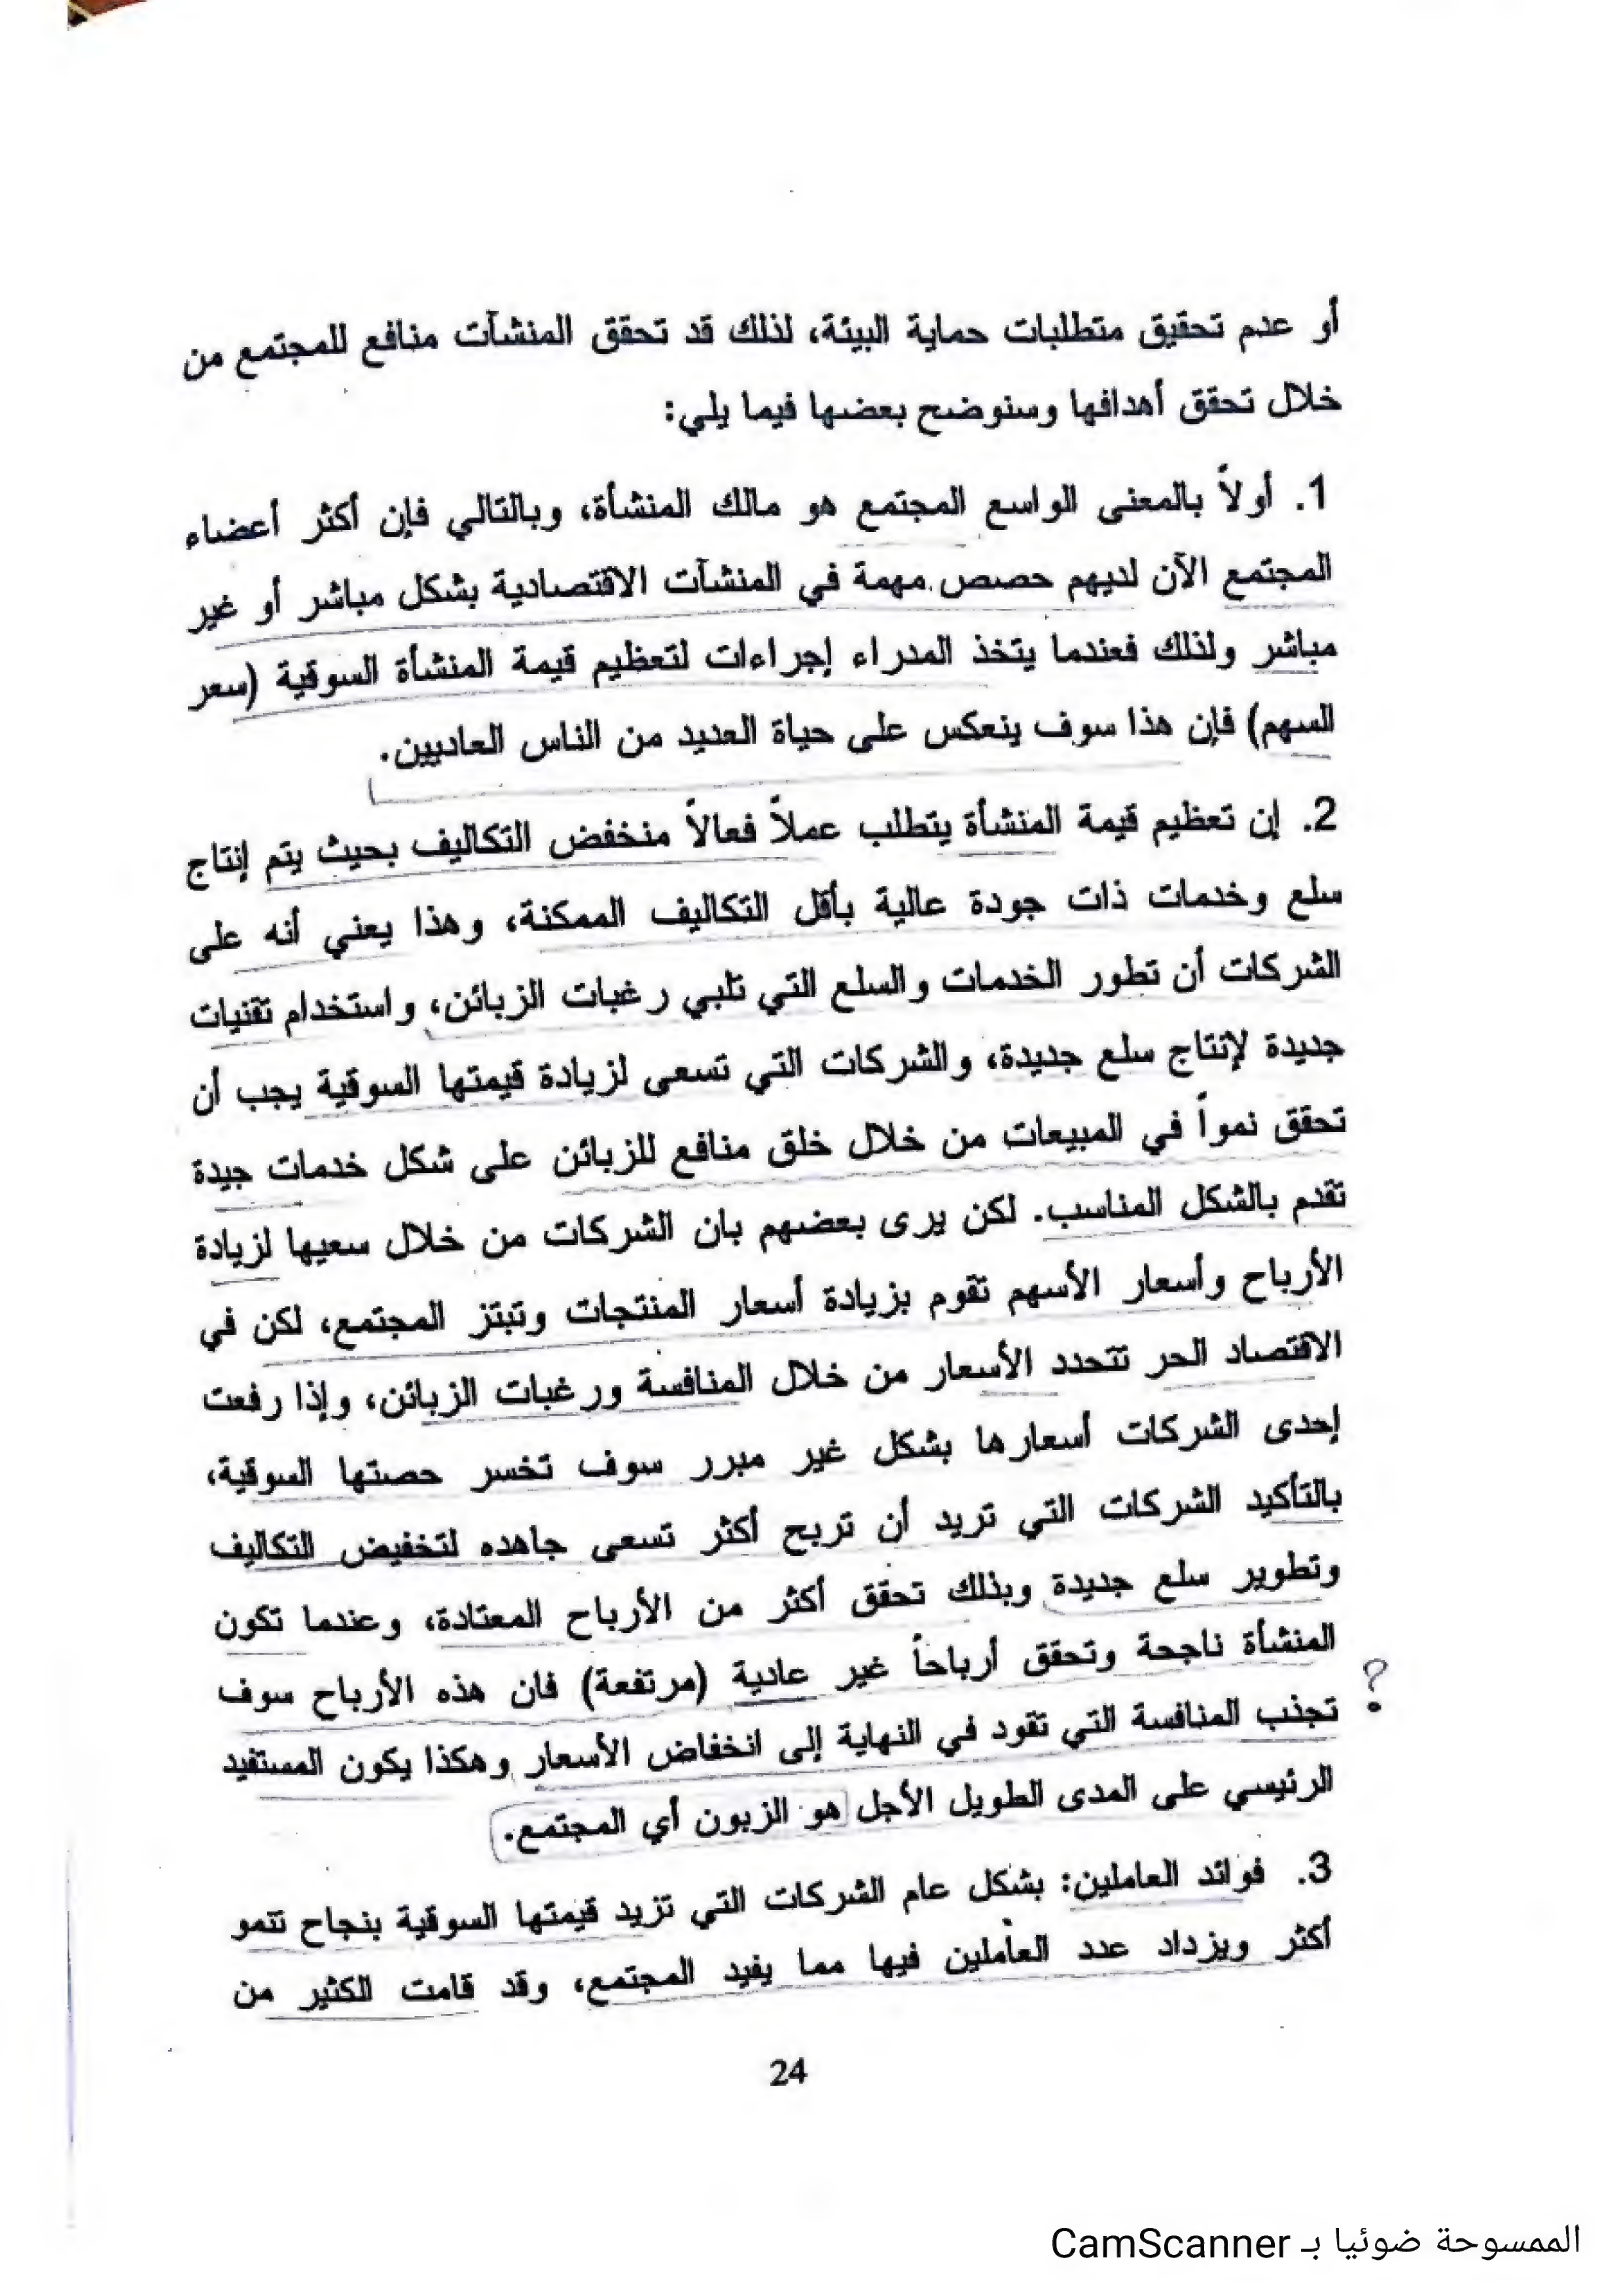 أو عدم تحقيق متطلبات حماية البيئة، لذلك قد تحقق المنشآت منافع للمجتمع من
خلال تحقق أهدافها وسنوضح بعضها فيما يلي:
1. أولاً بالمعنى الواسع المجتمع هو مالك المنشأة، وبالتالي فإن أكثر أعضاء
المجتمع الآن لديهم حصص مهمة في المنشآت الاقتصادية بشكل مباشر أو غير
مباشر ولذلك فعندما يتخذ المدراء إجراءات لتعظيم قيمة المنشأة السوقية (سعر
السهم) فإن هذا سوف ينعكس على حياة العديد من الناس العاديين.
2. إن تعظيم قيمة المنشأة يتطلب عملاً فعالاً منخفض التكاليف بحيث يتم إنتاج
سلع وخدمات ذات جودة عالية بأقل التكاليف الممكنة، وهذا يعني أنه على
الشركات أن تطور الخدمات والسلع التي تلبي رغبات الزبائن، واستخدام تقنيات
جديدة لإنتاج سلع جديدة، والشركات التي تسعى لزيادة قيمتها السوقية يجب أن
تحقق نمواً في المبيعات من خلال خلق منافع للزبائن على شكل خدمات جيدة
تقدم بالشكل المناسب. لكن يرى بعضهم بان الشركات من خلال سعيها لزيادة
الأرباح وأسعار الأسهم تقوم بزيادة أسعار المنتجات وتبتز المجتمع، لكن في
الاقتصاد الحر تتحدد الأسعار من خلال المنافسة ورغبات الزبائن، وإذا رفعت
إحدى الشركات أسعارها بشكل غير مبرر سوف تخسر حصتها السوقية،
بالتأكيد الشركات التي تريد أن تربح أكثر تسعى جاهده لتخفيض التكاليف
وتطوير سلع جديدة وبذلك تحقق أكثر من الأرباح المعتادة، وعندما تكون
المنشأة ناجحة وتحقق أرباحاً غير عادية (مرتفعة) فان هذه الأرباح سوف
؟
تجذب المنافسة التي تقود في النهاية إلى انخفاض الأسعار وهكذا يكون المستفيد
الرئيسي على المدى الطويل الأجل هو الزبون أي المجتمع.
3. فوائد العاملين: بشكل عام الشركات التي تزيد قيمتها السوقية بنجاح تنمو
أكثر ويزداد عدد العاملين فيها مما يفيد المجتمع، وقد قامت الكثير من
24
الممسوحة ضوئيا بـ CamScanner